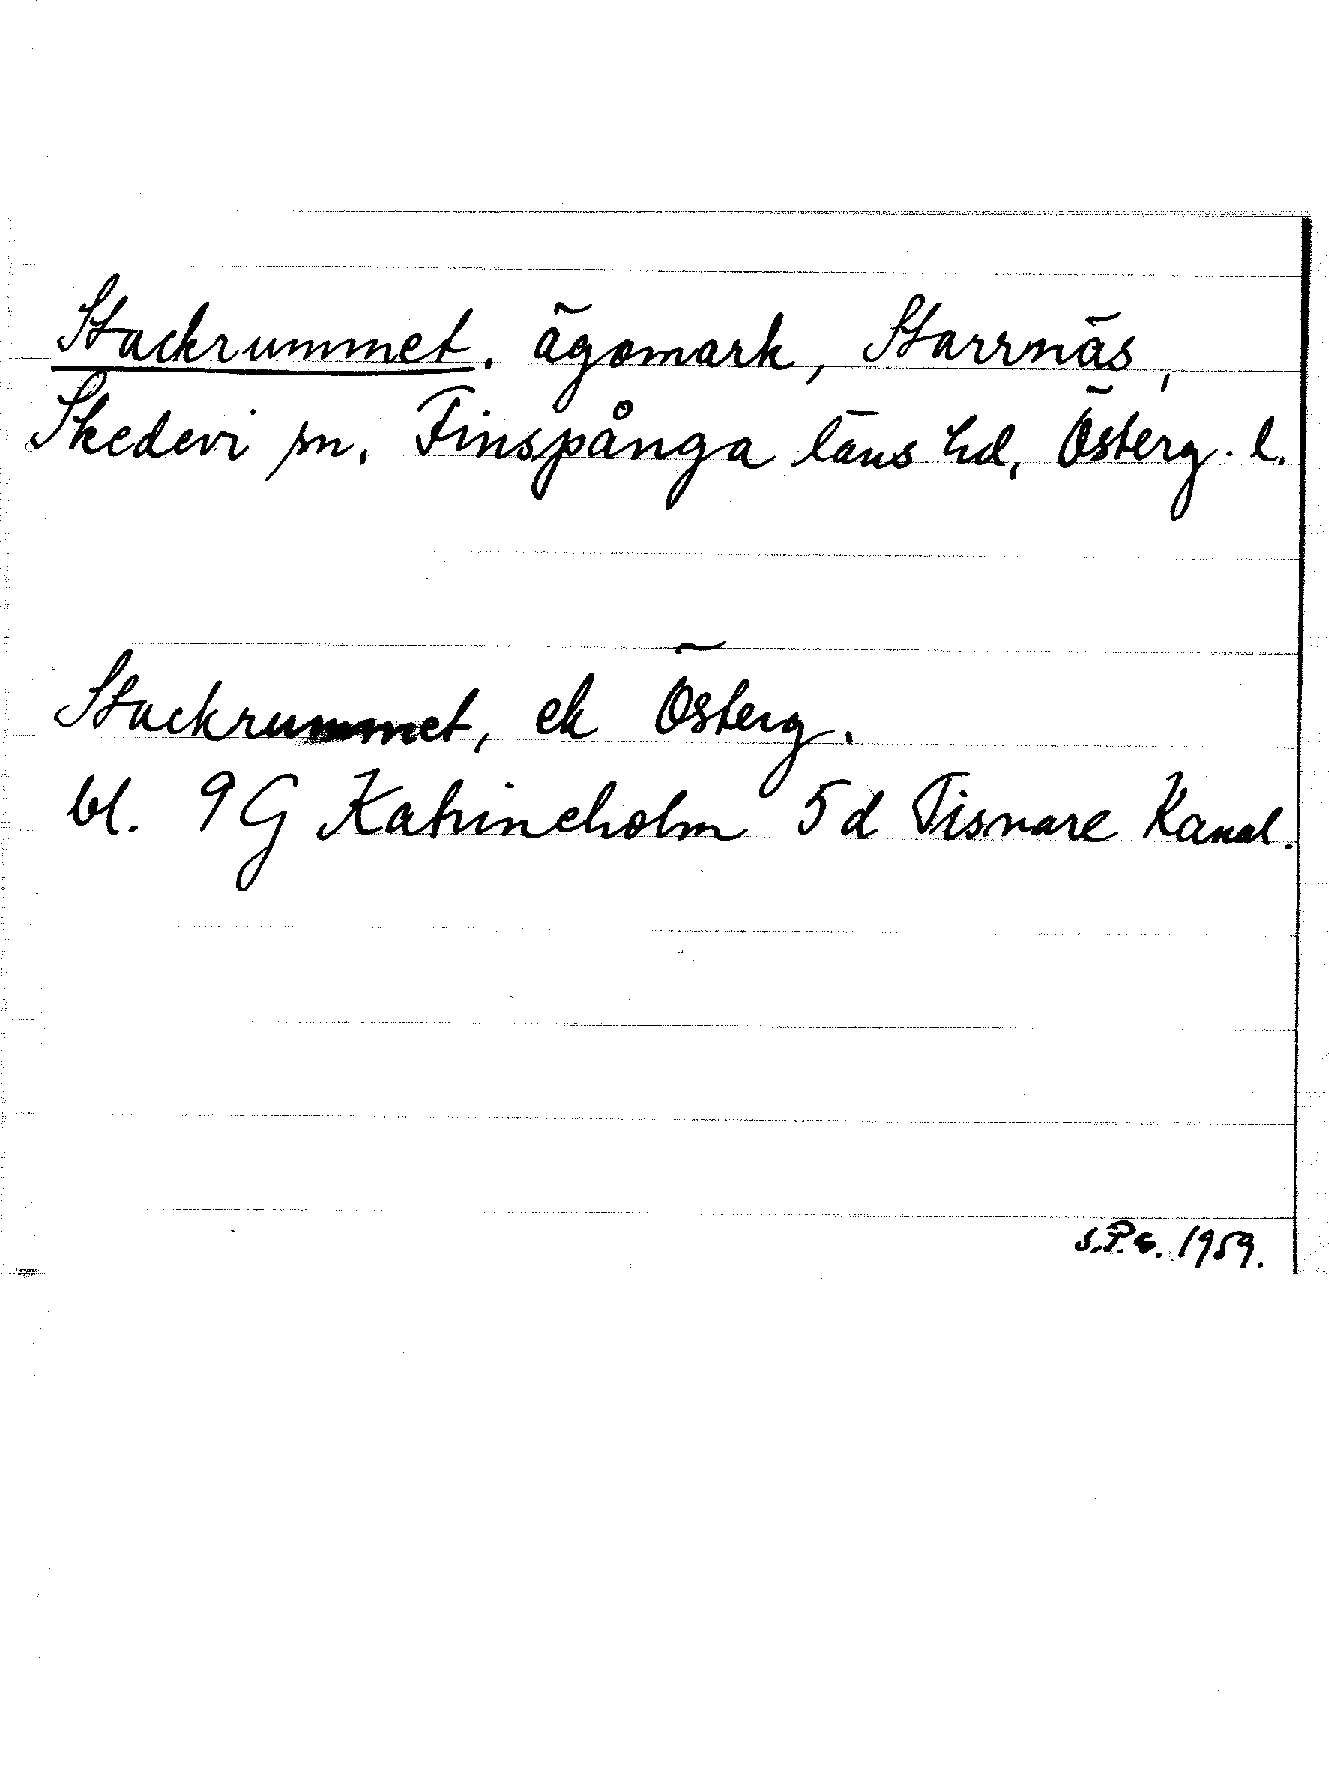 Stackrummet. ägomark, Starrnäs,
Skedevi sn. Finspånga läns hd, Österg. l.
Stackrummet, ek Österg.
bl. 9G Katrineholm 5d Tisnare Kanal.
S.P.G. 1959.